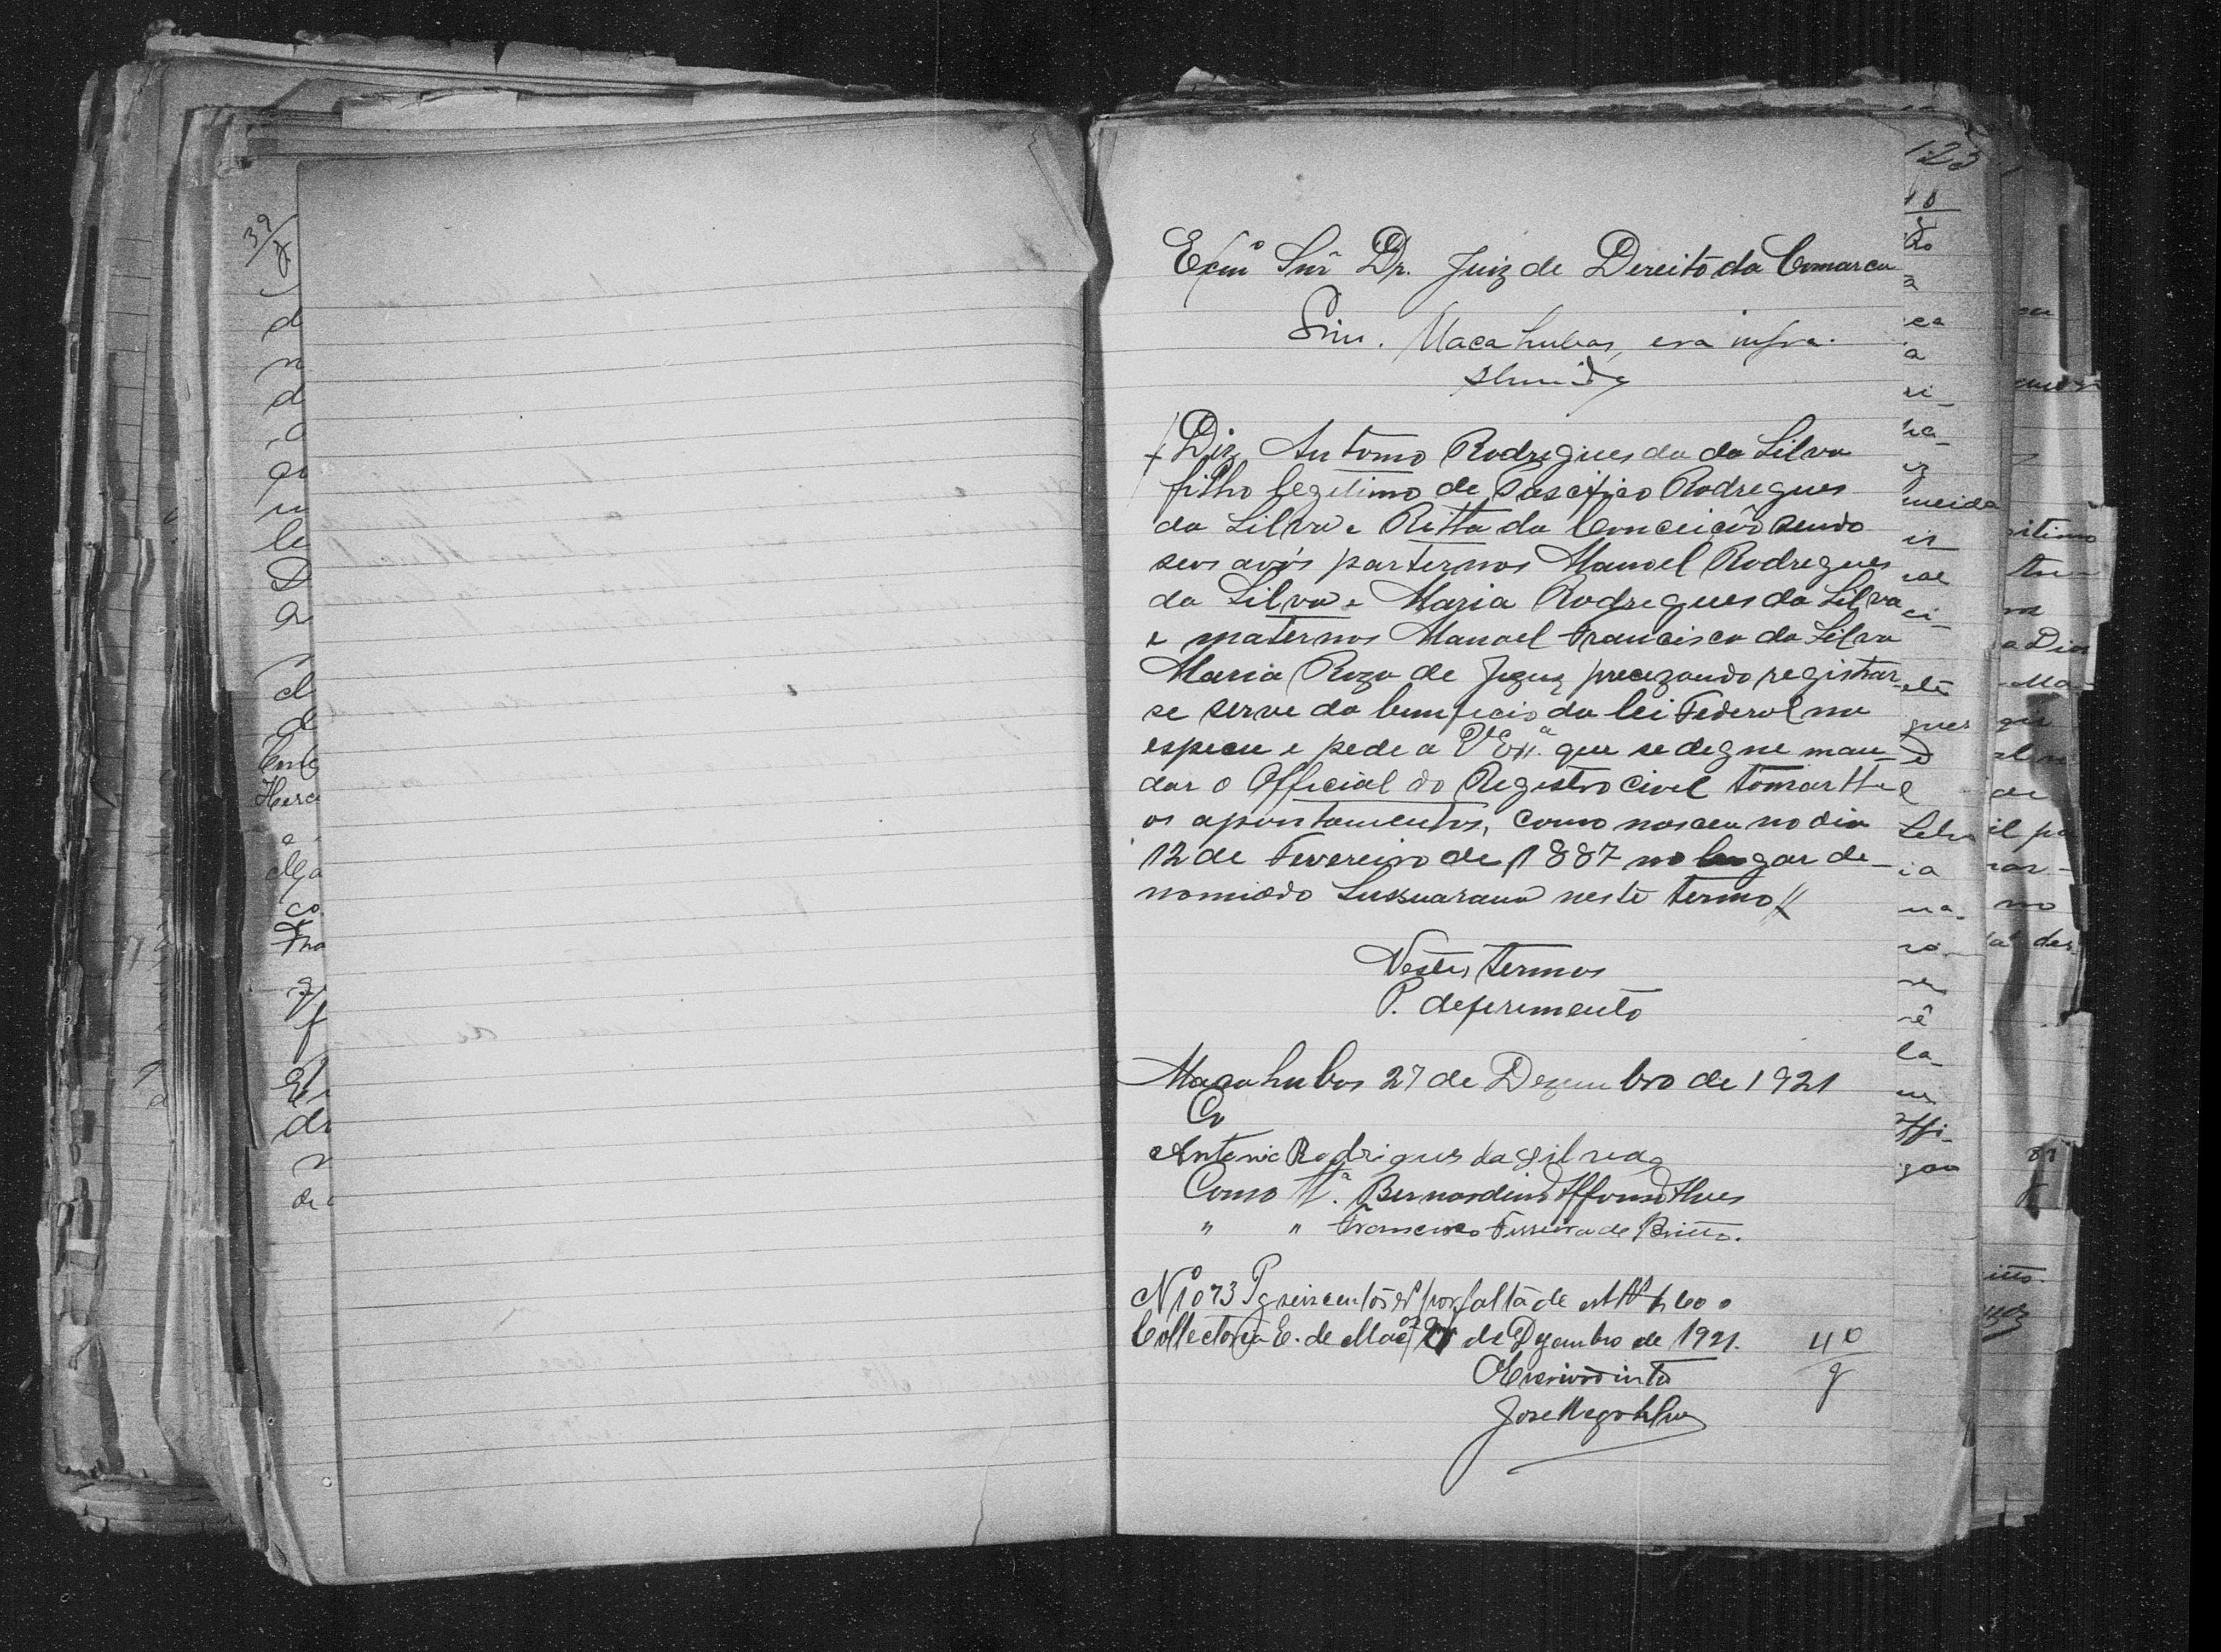 Exmº Snr Dr. Juiz de Dereito da Comarca
Sim. Macahubas, era infra.
Diz Antonio Rodregues da da Silva
filho legetimo de Rodregues
da Silva e Ritta da Conceicão sendo
seos avós parternos Manoel Rodregues
da Silva e Maria Rodregues da Silva
e maternos Manoel Francisco da Silva
Maria Roza de Jezuz precezando registrar
se serve do beneficio da lei Federal na
especie e pede a V Exª. que se degne man-
dar o Official do Registro Civel tomar lhe
os apontamentos, como nasceu no dia
12 de Fevereiro de 1887 no lugar de-
nomiado Sussuarana neste termo
Nestes termos
P. deferimento
Macahubas 27 de Dezembro de 1921
Antonio Rodrigues da Silva
Como Tª. Bernardino Affonso Alves
" " Francisco Ferreira de Britto.
Nº 1073 Pg seiscentos rs por falta de 600
Collectoria E. de Macas de Dezembro de 1921.
40
Jose
123
39